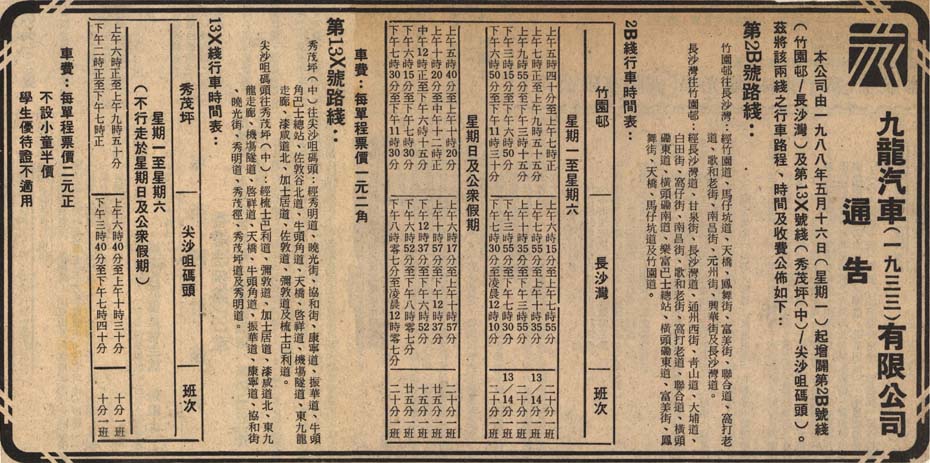 九龍汽車(一九三三)有限公司
通告
本公司由一九八八年五月十六日(星期一)起增闢第2B號綫
(竹園邨/長沙灣)及第13X號綫(秀茂坪(中)/尖沙咀碼頭)。
茲將該兩綫之行車路程、時間及收費公佈如下:
第2B號路綫:
竹園邨往長沙灣:經竹園道、馬仔坑道、天橋、鳳舞街、富美街、聯合道、窩打老
道、歌和老街、南昌街、元州街、興華街及長沙灣道。
長沙灣往竹園邨:經長沙灣道、甘泉街、長沙灣道、通州西街、青山道、大埔道、
白田街、窩仔街、南昌街、歌和老街、窩打老道、聯合道、橫頭
磡東道、橫頭磡南道、樂富巴士總站、橫頭磡東道、富美街、鳳
舞街、天橋、馬仔坑道及竹園道。
2B綫行車時間表:
竹園邨 長沙灣 班次
星期一至星期六
上午五時四十分至上午七時正 上午六時15分至上午七時55分 二十分一班
上午七時15分至上午九時55分 上午七時55分至上午十時35分 13/14分一班
上午十時15分至下午三時15分 上午十時55分至下午三時55分 二十分一班
下午三時15分至下午六時50分 下午三時55分至下午七時30分 13/14分一班
下午六時50分至下午11時三十分 下午七時30分至凌晨12時10分 二十分一班
星期日及公衆假期
上午五時40分至上午十時20分 上午六時17分至上午十時57分 二十分一班
上午十時20分至中午12時正 上午十時57分至下午12時37分 廿五分一班
中午12時正至下午六時十五分 下午12時37分至下午六時52分 十五分一班
下午六時十五分至下午七時30分 下午六時52分至下午八時零七分 廿五分一班
下午七時30分至下午11時30分 下午八時零七分至凌晨12時零七分 二十分一班
車費:每單程票價一元二角
第13X號路綫:
秀茂坪(中)往尖沙咀碼頭:經秀明道、曉光街、協和街、康寧道、振華道、牛頭
角道、天橋、啓祥道、機場隧道、東九龍
走廊、漆咸道北、加士居道、佐敦道、彌敦道及梳士巴利道。
尖沙咀碼頭往秀茂坪(中):經梳士巴利道、彌敦道、加士居道、漆咸道北、東九
龍走廊、機場隧道、啓祥道、天橋、牛頭角道、振華道、康寧道、協和街
、曉光街、秀明道、秀茂坪道及秀明道。
13X綫行車時間表:
秀茂坪 尖沙咀碼頭 班次
星期一至星期六
(不行走於星期日及公衆假期)
上午六時正至上午九時五十分 上午六時40分至上午十時三十分 十分一班
下午二時正至下午七時正 下午二時40分至下午七時四十分 十分一班
車費:每單程票價二元正
不設小童半價
學生優待證不適用